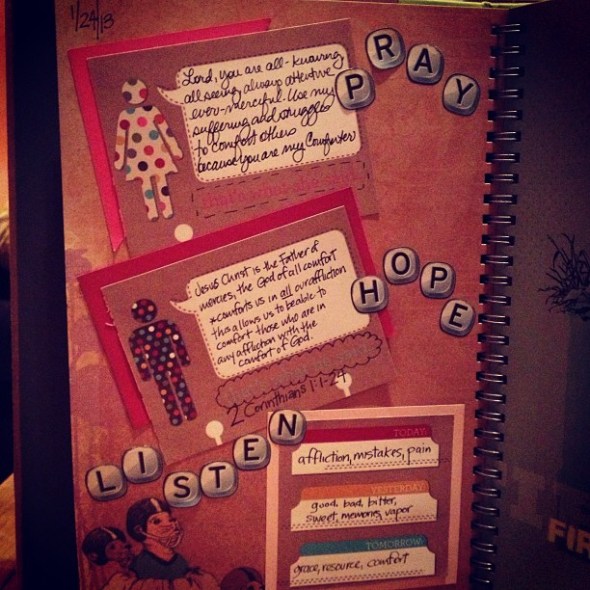 1/24/13
PRAY
Lord, you are all-knowing
all seeing, always attentive
ever-merciful. Use my
suffering and struggles
to comfort others
because you are my Comforter
HOPE
Jesus Christ is the Father of
mercies, the God of all comfort
*comforts us in all our affliction
this allows us to be able to
comfort those who are in
any affliction with the
comfort of God.
2 Corinthians 1:1-24
LISTEN
TODAY:
affliction, mistakes, pain
YESTERDAY:
good, bad, bitter,
sweet, memories, vapor
TOMORROW:
grace, resource, comfort
FIR